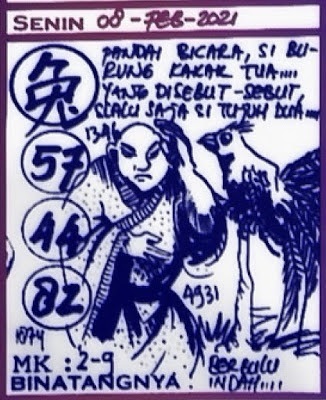 SENIN 08-FEB-2021
PANDAI BICARA, SI BU-
RUNG KAKAK TUA....
YANG DISEBUT-SEBUT,
SLALU SAJA SI TUJUH DUA....
兔
1346
57
44
82
4931
1074
MK : 2-9
BERBULU
BINATANGNYA : INDAH....